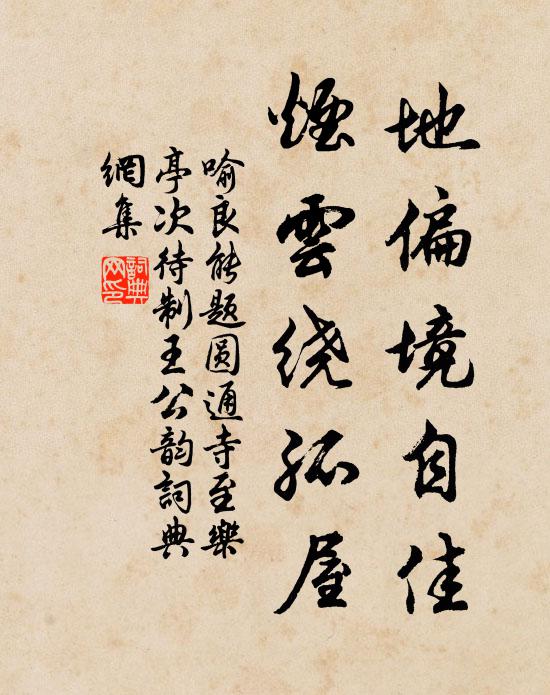 地偏境自佳
煙雲绕孤屋
喻良能題圓通寺至樂
亭次待制王公韵詞典
網集
詞典網印